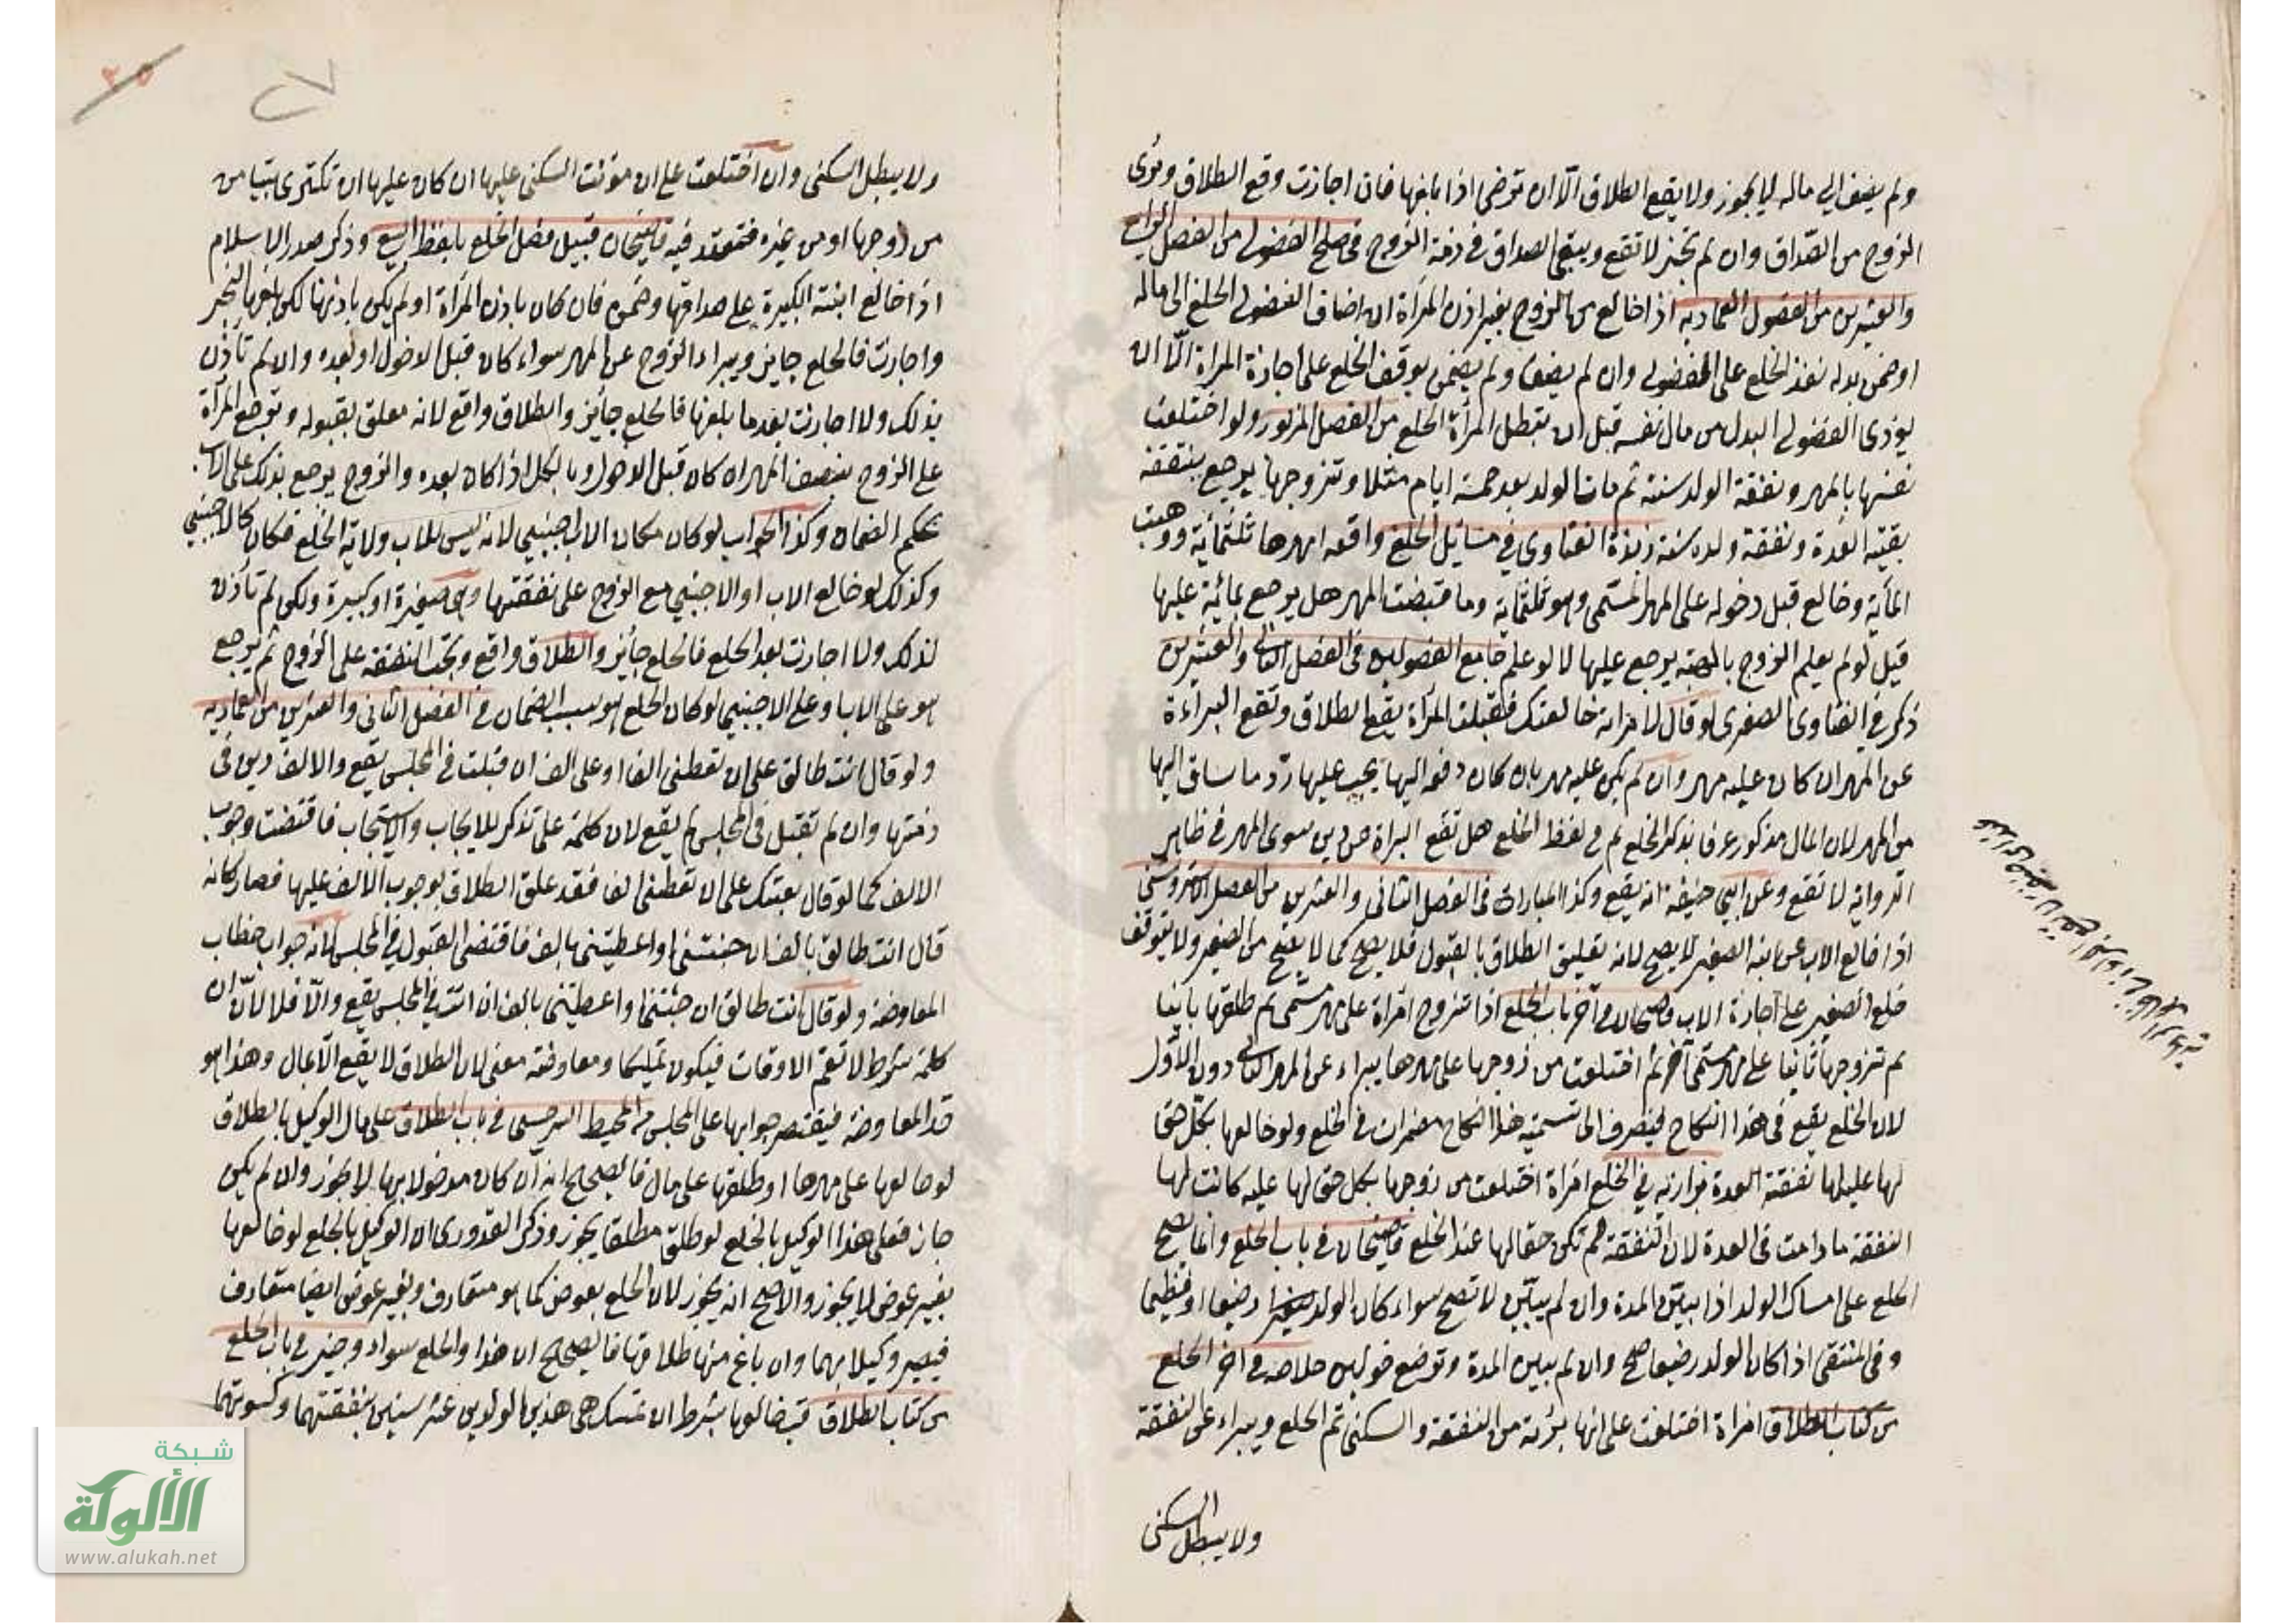 ولم يضف الي ماله لا يجوز ولا يقع الطلاق الّا ان ترضى اذا بلغها فان اجازت وقع الطلاق وبرئ
الزوج من الصّداق وان لم تجز لا تقع ويبقى الصداق في ذمة الزوج في صلح الفضولي من الفصل الرابع
والعشرين من الفصول العمادية اذا خالع مع الزوج بغير اذن المرأة ان اضاف الفضولي الخلع الى ماله
او ضمن بدله نفذ الخلع على الفضولي وان لم يضف ولم يضمن يوقف الخلع على اجازة المراة الّا ان
يؤدى الفضولي البدل من مال نفسه قبل ان تبطل المرأة الخلع من الفصل المزبور ولو اختلعت
نفسها بالمهر ونفقة الولد سنة ثم مات الولد بعد خمسة ايام مثلا وتزوجها يرجع بنفقة
بقية العدة ونفقة ولده سنة زبدة الفتاوى في مسائل الخلع واقعه امهرها ثلثمائة ووهبت
المأية وخالع قبل دخوله على المهر المسمى وهو ثلثماية وما قبضت المهر هل يرجع بمائية عليها
قيل لو لم يعلم الزوج بالهبة يرجع عليها لا لو علم جامع الفصولين في الفصل الثاني والعشرين
ذكر في الفتاوى الصغرى لو قال لامراته خالعتك فقبلت المرأة يقع الطلاق وتقع البراءة
عن المهر ان كان عليه مهر وان لم يكن عليه مهر بان كان دفعه اليها يجب عليها ردّ ما ساق اليها
من المهر لان المال مذكور عرفا بذكر الخلع ثم في لفظ الخلع هل تقع البراة عن دين سوى المهر في ظاهر
الرواية لا تقع وعن ابي حنيفة انه يقع وكذا المبارات في الفصل الثاني والعشرين من الفصل الاستروشني
اذا خالع الاب عن ابنه الصغير لا يصح لانه تعليق الطلاق بالقبول فلا يصح كما لا يصح من الصغير ولا يتوقف
خلع الصغير على اجازة الاب قاضيخان في آخر باب الخلع اذا تزوج امراة على مهر مسمى ثم طلقها باينا
ثم تزوجها ثانيا على مهر مسمى آخر ثم اختلعت من زوجها على مهرها يبراء عن المهر الثاني دون الاول
لان الخلع يقع في هذا النكاح فينصرف الى تسمية هذا النكاح مضمرات في الخلع ولو خالعها بكل حق
لها عليه لها نفقة العدة بزازيه في الخلع امراة اختلعت من زوجها بكل حق لها عليه كانت لها
النفقة ما دامت في العدة لان النفقة لم تكن حقا لها عند الخلع قاضيخان في باب الخلع وانما يصح
الخلع على امساك الولد اذا بيّن المدة وان لم يبيّن لا تصح سواء كان الولد رضيعا او فطيما
وفي المنتقى اذا كان الولد رضيعا صح وان لم يبين المدة وترضع حولين خلاصه في اخر الخلع
من كتاب الطلاق امراة اختلعت على انها بريّة من النفقة والسكنى تم الخلع ويبراء عن النفقة
ولا يبطل السكنى
ولا يبطل السكنى وان اختلعت على ان مؤنت السكنى عليها ان كان عليها ان تكترى بيتا من
من زوجها او من غيره فتعتد فيه قاضيخان قبيل فصل الخلع بلفظ البيع وذكر صدر الاسلام
اذا خالع ابنته الكبيرة على صداقها وضمن فان كان باذن المرأة او لم يكن باذنها لكن بلغها الخبر
واجازت فالخلع جايز ويبراء الزوج عن المهر سواء كان قبل الدخول او بعده وان لم تأذن
بذلك ولا اجازت بعد ما بلغها فالخلع جائز والطلاق واقع لانه معلق بقبوله وترجع المرأة
على الزوج بنصف المهر ان كان قبل الدخول وبالكل اذا كان بعده والزوج يرجع بذلك على الاب
بحكم الضمان وكذا الجواب لو كان مكان الاب اجنبي لانه ليس للاب ولاية الخلع فكان كالاجنبي
وكذلك لو خالع الاب او الاجنبي مع الزوج على نفقتها وهي صغيرة او كبيرة ولكن لم تأذن
لذلك ولا اجازت بعد الخلع فالخلع جائز والطلاق واقع وتجب النفقه على الزوج ثم يرجع
هو على الاب او على الاجنبي لو كان الخلع هو بسبب الضمان في الفصل الثاني والعشرين من العمادية
ولو قال انت طالق على ان تعطنى الفا او على الف ان قبلت في المجلس يقع والالف دين في
ذمتها وان لم تقبل في المجلس لم يقع لان كلمة على تذكر للايجاب والاستجاب فاقتضت وجوب
الالف كما لو قال بعتك على ان تعطنى الفا فقد علق الطلاق بوجوب الالف عليها فصار كانه
قال انت طالق بالف ان جئتنى او اعطيتنى بالف فاقتضى القبول في المجلس لانه جواب خطاب
المعاوضة ولو قال انت طالق ان جئتنى او اعطيتنى بالف ان اتت في المجلس يقع والّا فلا لانّ ان
كلمة شرط لا تعم الاوقات فيكون تمليكا ومعاوضة معنى لان الطلاق لا يقع الّا بمال وهذا هو
حد المعاوضة فيقتصر جوابها على المجلس من المحيط السرخسى في باب الطلاق على مال الوكيل بالطلاق
لو خالعها على مهرها او طلقها على مال فالصحيح انه ان كان مدخولا بها لا يجوز وان لم يكن
جاز فعلى هذا الوكيل بالخلع لو طلق مطلقا يجوز وذكر القدورى ان الوكيل بالخلع لو خالعها
بغير عوض لا يجوز والاصح انه يجوز لان الخلع بعوض كما هو متعارف وبغير عوض ايضا متعارف
فيصير وكيلا بهما وان باع منها طلاقها فالصحيح ان هذا والخلع سواء وجيز في باب الخلع
من كتاب الطلاق خالعها بشرط ان تمسك هي هذين الولدين عشر سنين بنفقتهما وكسوتهما
شبكة
الألوكة
www.alukah.net